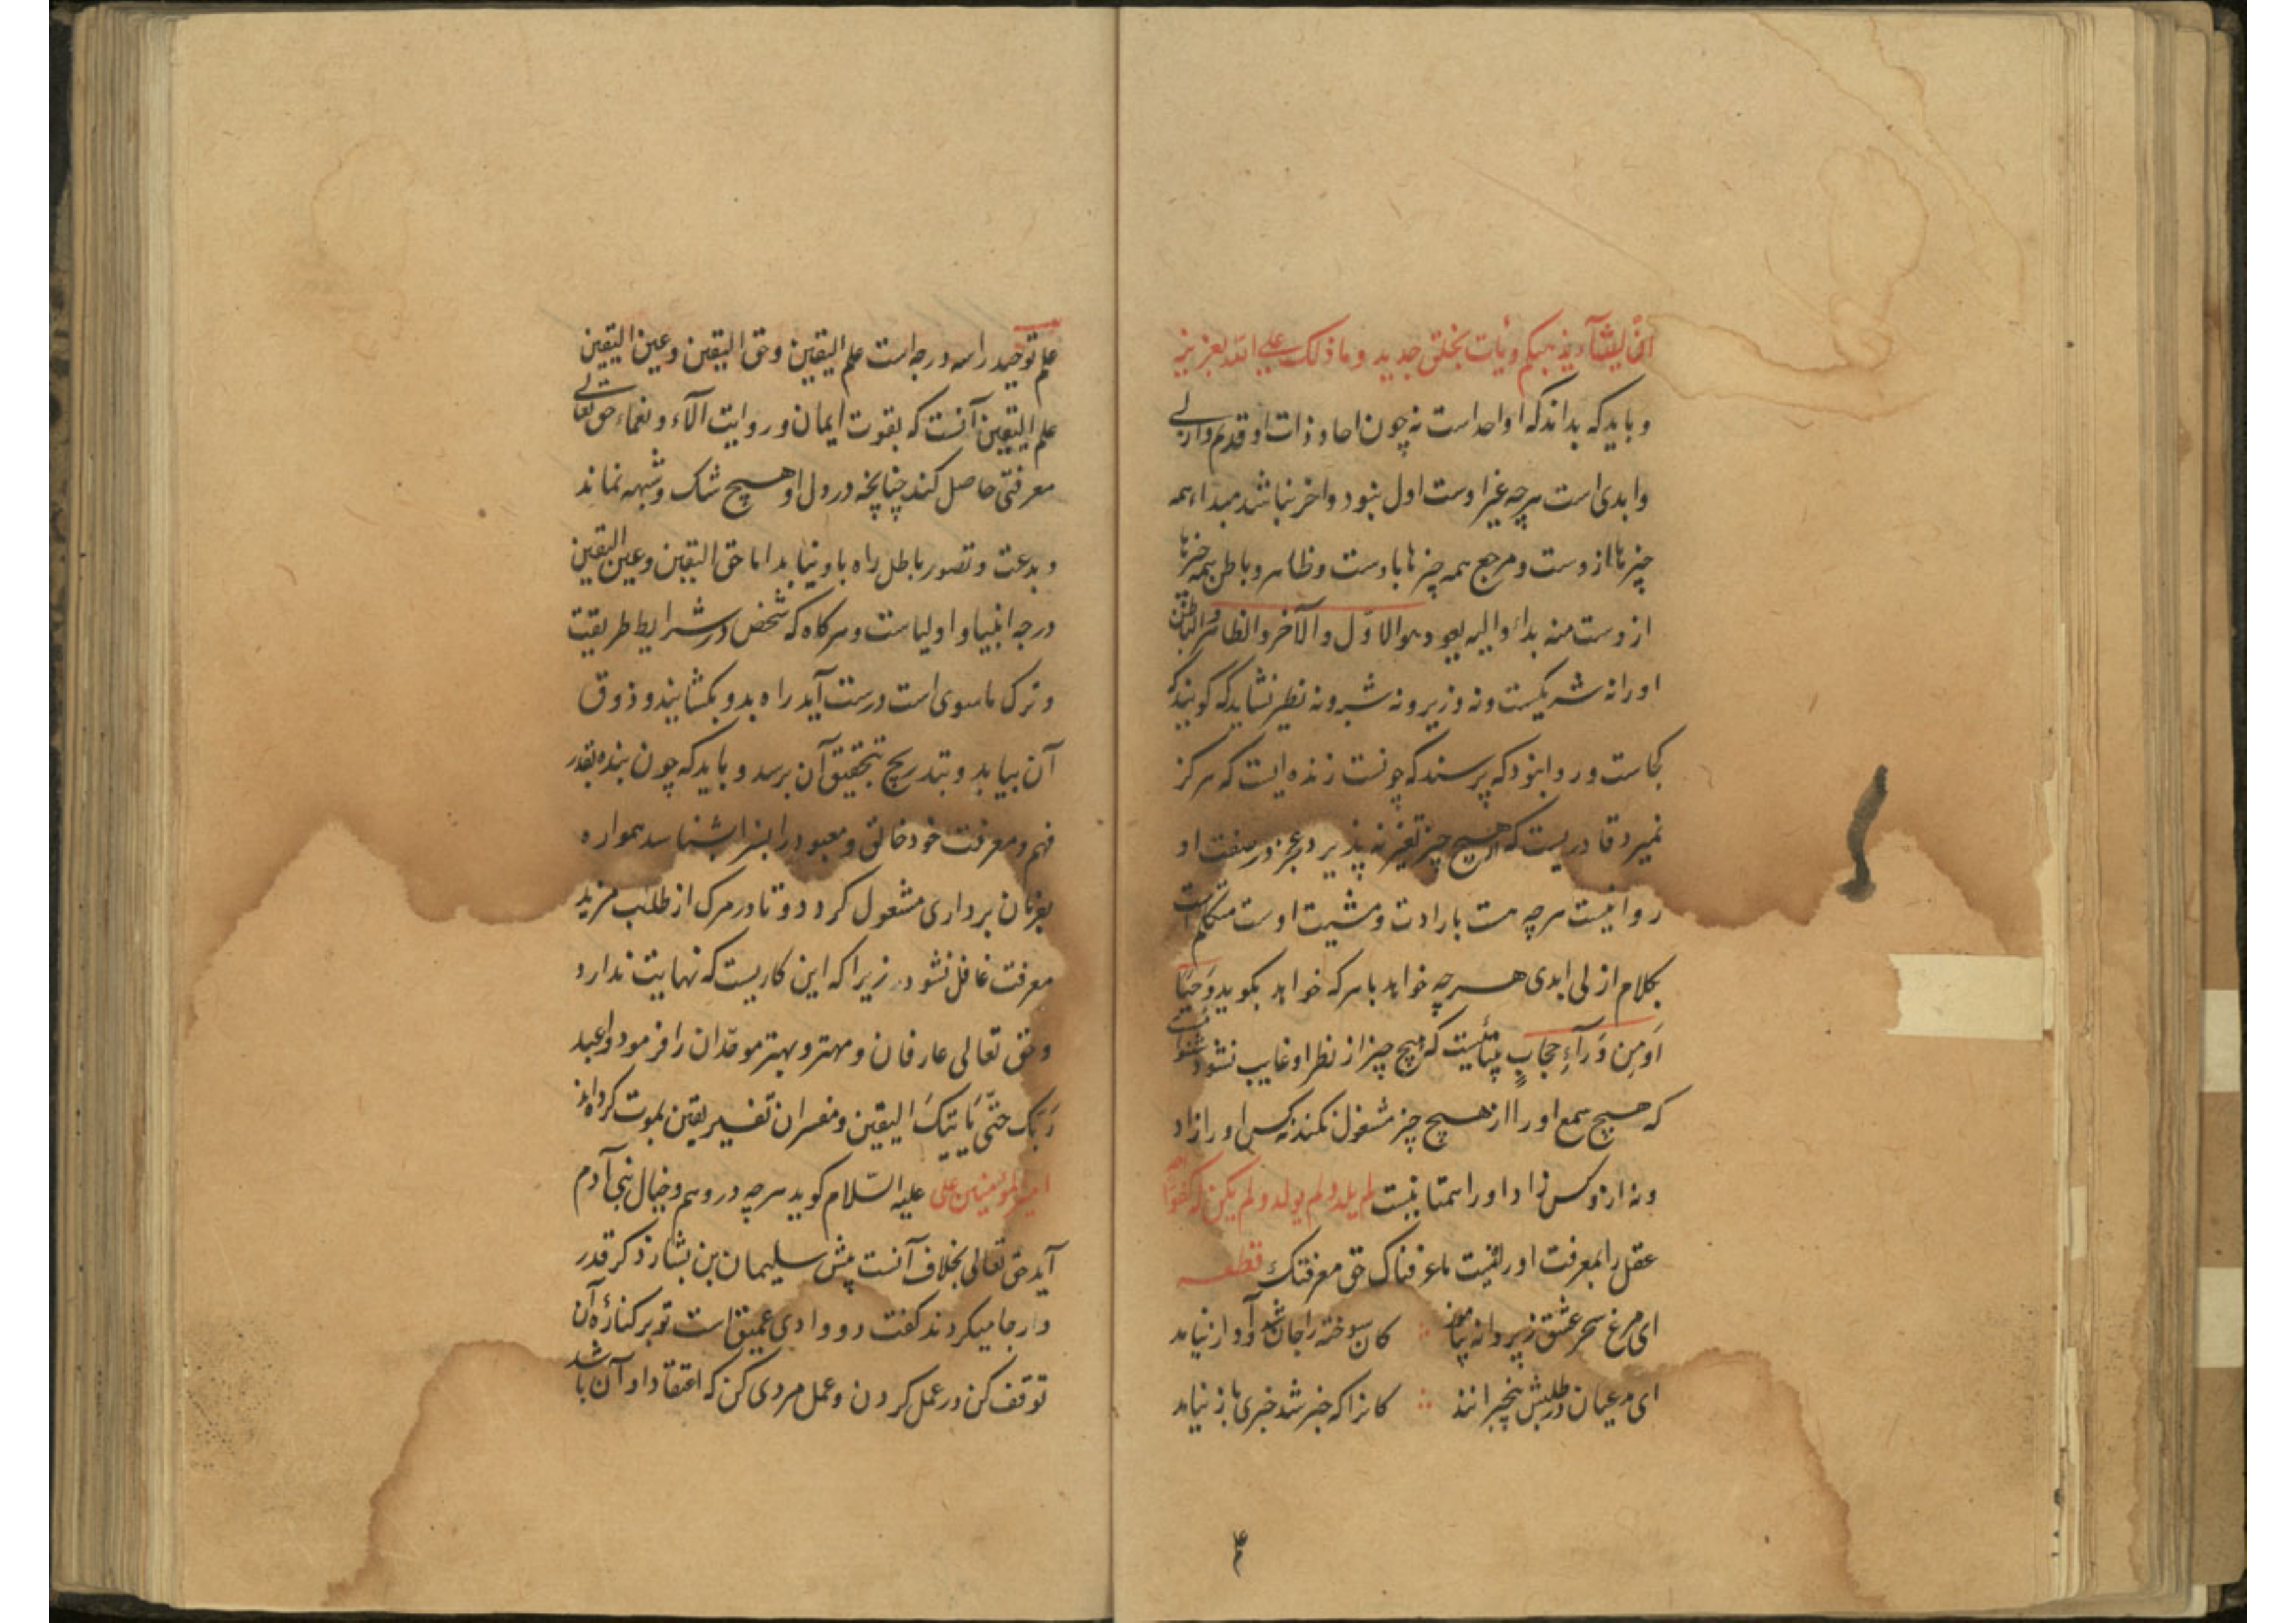 ان یشآء یذهبکم و یأت بخلق جدید و ما ذلک علی الله بعزیز
و باید که بداند که او واحد است نه چون احاد و ذات او قدیم و ازلی
و ابدی است هرچه غیر اوست اول نبود و اخر نباشد مبداء همه
چیزها از وست و مرجع همه چیزها باوست و ظاهر و باطن همه چیزها
ازوست منه بداء و الیه یعود هو الاوّل و الآخر و الظاهر و الباطن
او را نه شریکست و نه وزیر و نه شبه و نه نظیر نشاید که گویند که
کجاست و روا نبود که پرسند که چونست زنده ایست که هرکز
نمیرد قادریست که هیچ چیز تغیر نه پذیرد و عجز در صفت او
روا نیست هرچه هست بارادت و مشیت اوست متکلم است
بکلام ازلی ابدی هرچه خواهد با هرکه خواهد بکوید وَحیًا
اَو مِن وَرآءِ حجابٍ بیناییست که هیچ چیز از نظر او غایب نشود شنوائی
که هیچ سمع او را از هیچ چیز مشغول نکند نه کس او را زاد
و نه از و کس زاد او را همتا نیست لم یلد و لم یولد و لم یکن له کفوًا
عقل را بمعرفت او راه نیست ما عرفناک حق معرفتک قطعه
ای مرغ سحر عشق ز پروانه بیاموز کان سوخته را جان شد و آواز نیامد
ای مدعیان در طلبش بیخبرانند کانرا که خبر شد خبری باز نیامد
۴
علم توحید را سه درجه است علم الیقین و حق الیقین و عین الیقین
علم الیقین آنست که بقوت ایمان و روایت آلاء و نعماء حق تعالی
معرفتی حاصل کند چنانچه در دل او هیچ شک و شبهه نماند
و بدعت و تصور باطل راه باو نیابد اما حق الیقین و عین الیقین
درجه انبیا و اولیاست و هرکاه که شخص در شرایط طریقت
و ترک ماسوی است درست آید راه بدو بکشایند و ذوق
آن بیابد و بتدریج بتحقیق آن برسد و باید که چون بنده بقدر
فهم و معرفت خود خالق و معبود را بسزا بشناسد همواره
بفرمان برداری مشغول کردد و تا در مرک از طلب مزید
معرفت غافل نشود زیرا که این کاریست که نهایت ندارد
و حق تعالی عارفان و مهتر و بهتر موحّدان را فرمود واعبد
رَبّکَ حتّی یَاتِیَکَ الیقین و مفسران تفسیر یقین بموت کرده اند
امیر المؤمنین علی علیه السّلام کوید هرچه در وهم و خیال بنی آدم
آید حق تعالی بخلاف آنست پیش سلیمان بن بشار ذکر قدر
و ارجا میکردند کفت دو وادی عمیق است تو بر کنارهٔ آن
توقف کن در عمل کردن و عمل مردی کن که اعتقاد او آن باشد